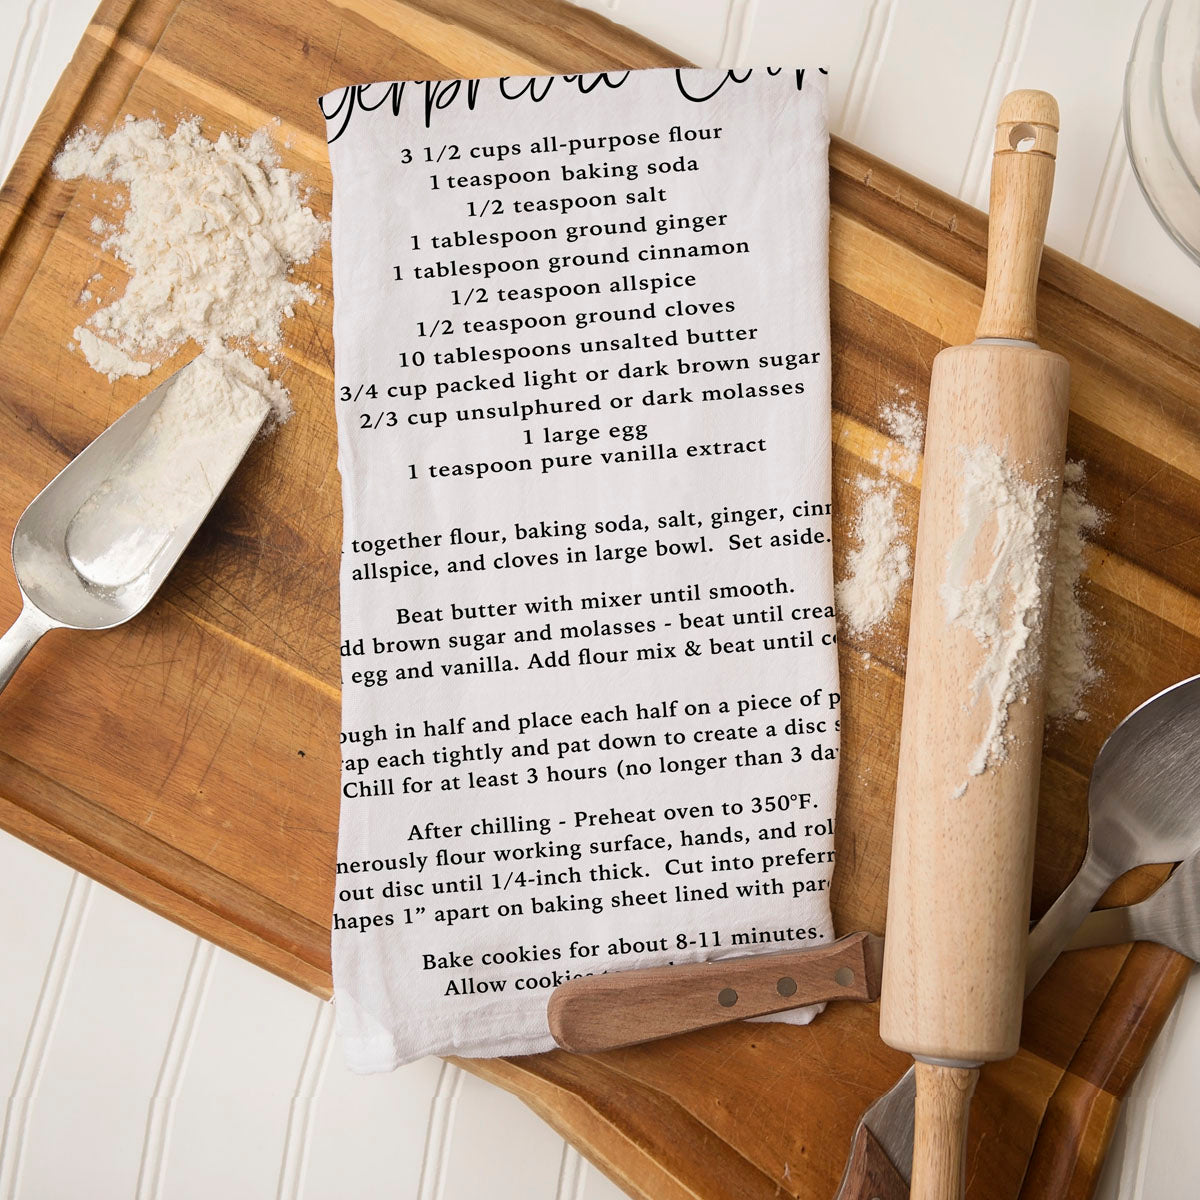 3 1/2 cups all-purpose flour
1 teaspoon baking soda
1/2 teaspoon salt
1 tablespoon ground ginger
1 tablespoon ground cinnamon
1/2 teaspoon allspice
1/2 teaspoon ground cloves
10 tablespoons unsalted butter
3/4 cup packed light or dark brown sugar
2/3 cup unsulphured or dark molasses
1 large egg
1 teaspoon pure vanilla extract
together flour, baking soda, salt, ginger, cinn
allspice, and cloves in large bowl. Set aside.
Beat butter with mixer until smooth.
dd brown sugar and molasses - beat until crea
egg and vanilla. Add flour mix & beat until c
ough in half and place each half on a piece of p
rap each tightly and pat down to create a disc s
Chill for at least 3 hours (no longer than 3 da
After chilling - Preheat oven to 350°F.
nerously flour working surface, hands, and rol
out disc until 1/4-inch thick. Cut into preferr
hapes 1” apart on baking sheet lined with par
Bake cookies for about 8-11 minutes.
Allow cookie